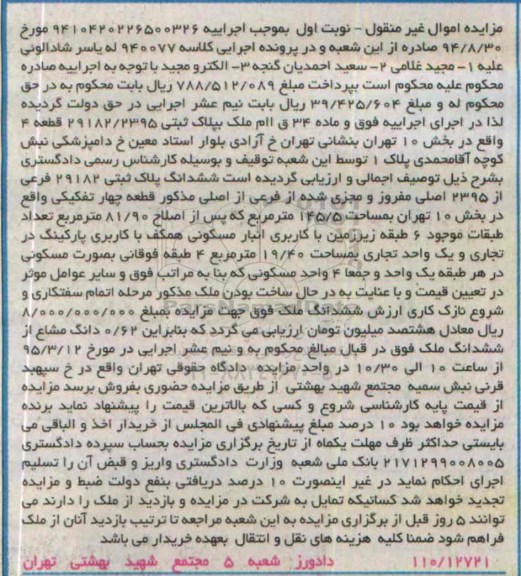 مزایده اموال غیر منقول - نوبت اول بموجب اجراییه ۹۴۱۰۴۲۰۲۲۶۵۰۰۳۲۶ مورخ
۹۴/۸/۳۰ صادره از این شعبه و در پرونده اجرایی کلاسه ۹۴۰۰۷۷ له یاسر شادالونی
علیه ۱- مجید غلامی ۲- سعید احمدیان گنجه ۳- الکترو مجید با توجه به اجراییه صادره
محکوم علیه محکوم است بپرداخت مبلغ ۷۸۸/۵۱۲/۰۸۹ ریال بابت محکوم به در حق
محکوم له و مبلغ ۳۹/۴۲۵/۶۰۴ ریال بابت نیم عشر اجرایی در حق دولت گردیده
لذا در اجرای اجراییه فوق و ماده ۳۴ ق اام ملک بپلاک ثبتی ۲۹۱۸۲/۲۳۹۵ قطعه ۴
واقع در بخش ۱۰ تهران بنشانی تهران خ آزادی بلوار استاد معین خ دامپزشکی نبش
کوچه آقامحمدی پلاک ۱ توسط این شعبه توقیف و بوسیله کارشناس رسمی دادگستری
بشرح ذیل توصیف اجمالی و ارزیابی گردیده است ششدانگ پلاک ثبتی ۲۹۱۸۲ فرعی
از ۲۳۹۵ اصلی مفروز و مجزی شده از فرعی از اصلی مذکور قطعه چهار تفکیکی واقع
در بخش ۱۰ تهران بمساحت ۱۴۵/۵ مترمربع که پس از اصلاح ۸۱/۹۰ مترمربع تعداد
طبقات موجود ۶ طبقه زیرزمین با کاربری انبار مسکونی همکف با کاربری پارکینگ در
تجاری و یک واحد تجاری بمساحت ۱۹/۴۰ مترمربع ۴ طبقه فوقانی بصورت مسکونی
در هر طبقه یک واحد و جمعا ۴ واحد مسکونی که بنا به مراتب فوق و سایر عوامل موثر
در تعیین قیمت و با عنایت به در حال ساخت بودن ملک مذکور مرحله اتمام سفتکاری و
شروع نازک کاری ارزش ششدانگ ملک فوق جهت مزایده بمبلغ ۸/۰۰۰/۰۰۰/۰۰۰
ریال معادل هشتصد میلیون تومان ارزیابی می گردد که بنابراین ۰/۶۲ دانگ مشاع از
ششدانگ ملک فوق در قبال مبالغ محکوم به و نیم عشر اجرایی در مورخ ۹۵/۳/۱۲
از ساعت ۱۰ الی ۱۰/۳۰ در واحد مزایده دادگاه حقوقی تهران واقع در خ سپهبد
قرنی نبش سمیه مجتمع شهید بهشتی از طریق مزایده حضوری بفروش برسد مزایده
از قیمت پایه کارشناسی شروع و کسی که بالاترین قیمت را پیشنهاد نماید برنده
مزایده خواهد بود ۱۰ درصد مبلغ پیشنهادی فی المجلس از خریدار اخذ و الباقی می
بایستی حداکثر ظرف مهلت یکماه از تاریخ برگزاری مزایده بحساب سپرده دادگستری
۲۱۷۱۲۹۹۰۰۸۰۰۵ بانک ملی شعبه وزارت دادگستری واریز و قبض آن را تسلیم
اجرای احکام نماید در غیر اینصورت ۱۰ درصد دریافتی بنفع دولت ضبط و مزایده
تجدید خواهد شد کسانیکه تمایل به شرکت در مزایده و بازدید از ملک را دارند می
توانند ۵ روز قبل از برگزاری مزایده به این شعبه مراجعه تا ترتیب بازدید آنان از ملک
فراهم شود ضمنا کلیه هزینه های نقل و انتقال بعهده خریدار می باشد
۱۱۰/۱۲۷۲۱ دادورز شعبه ۵ مجتمع شهید بهشتی تهران